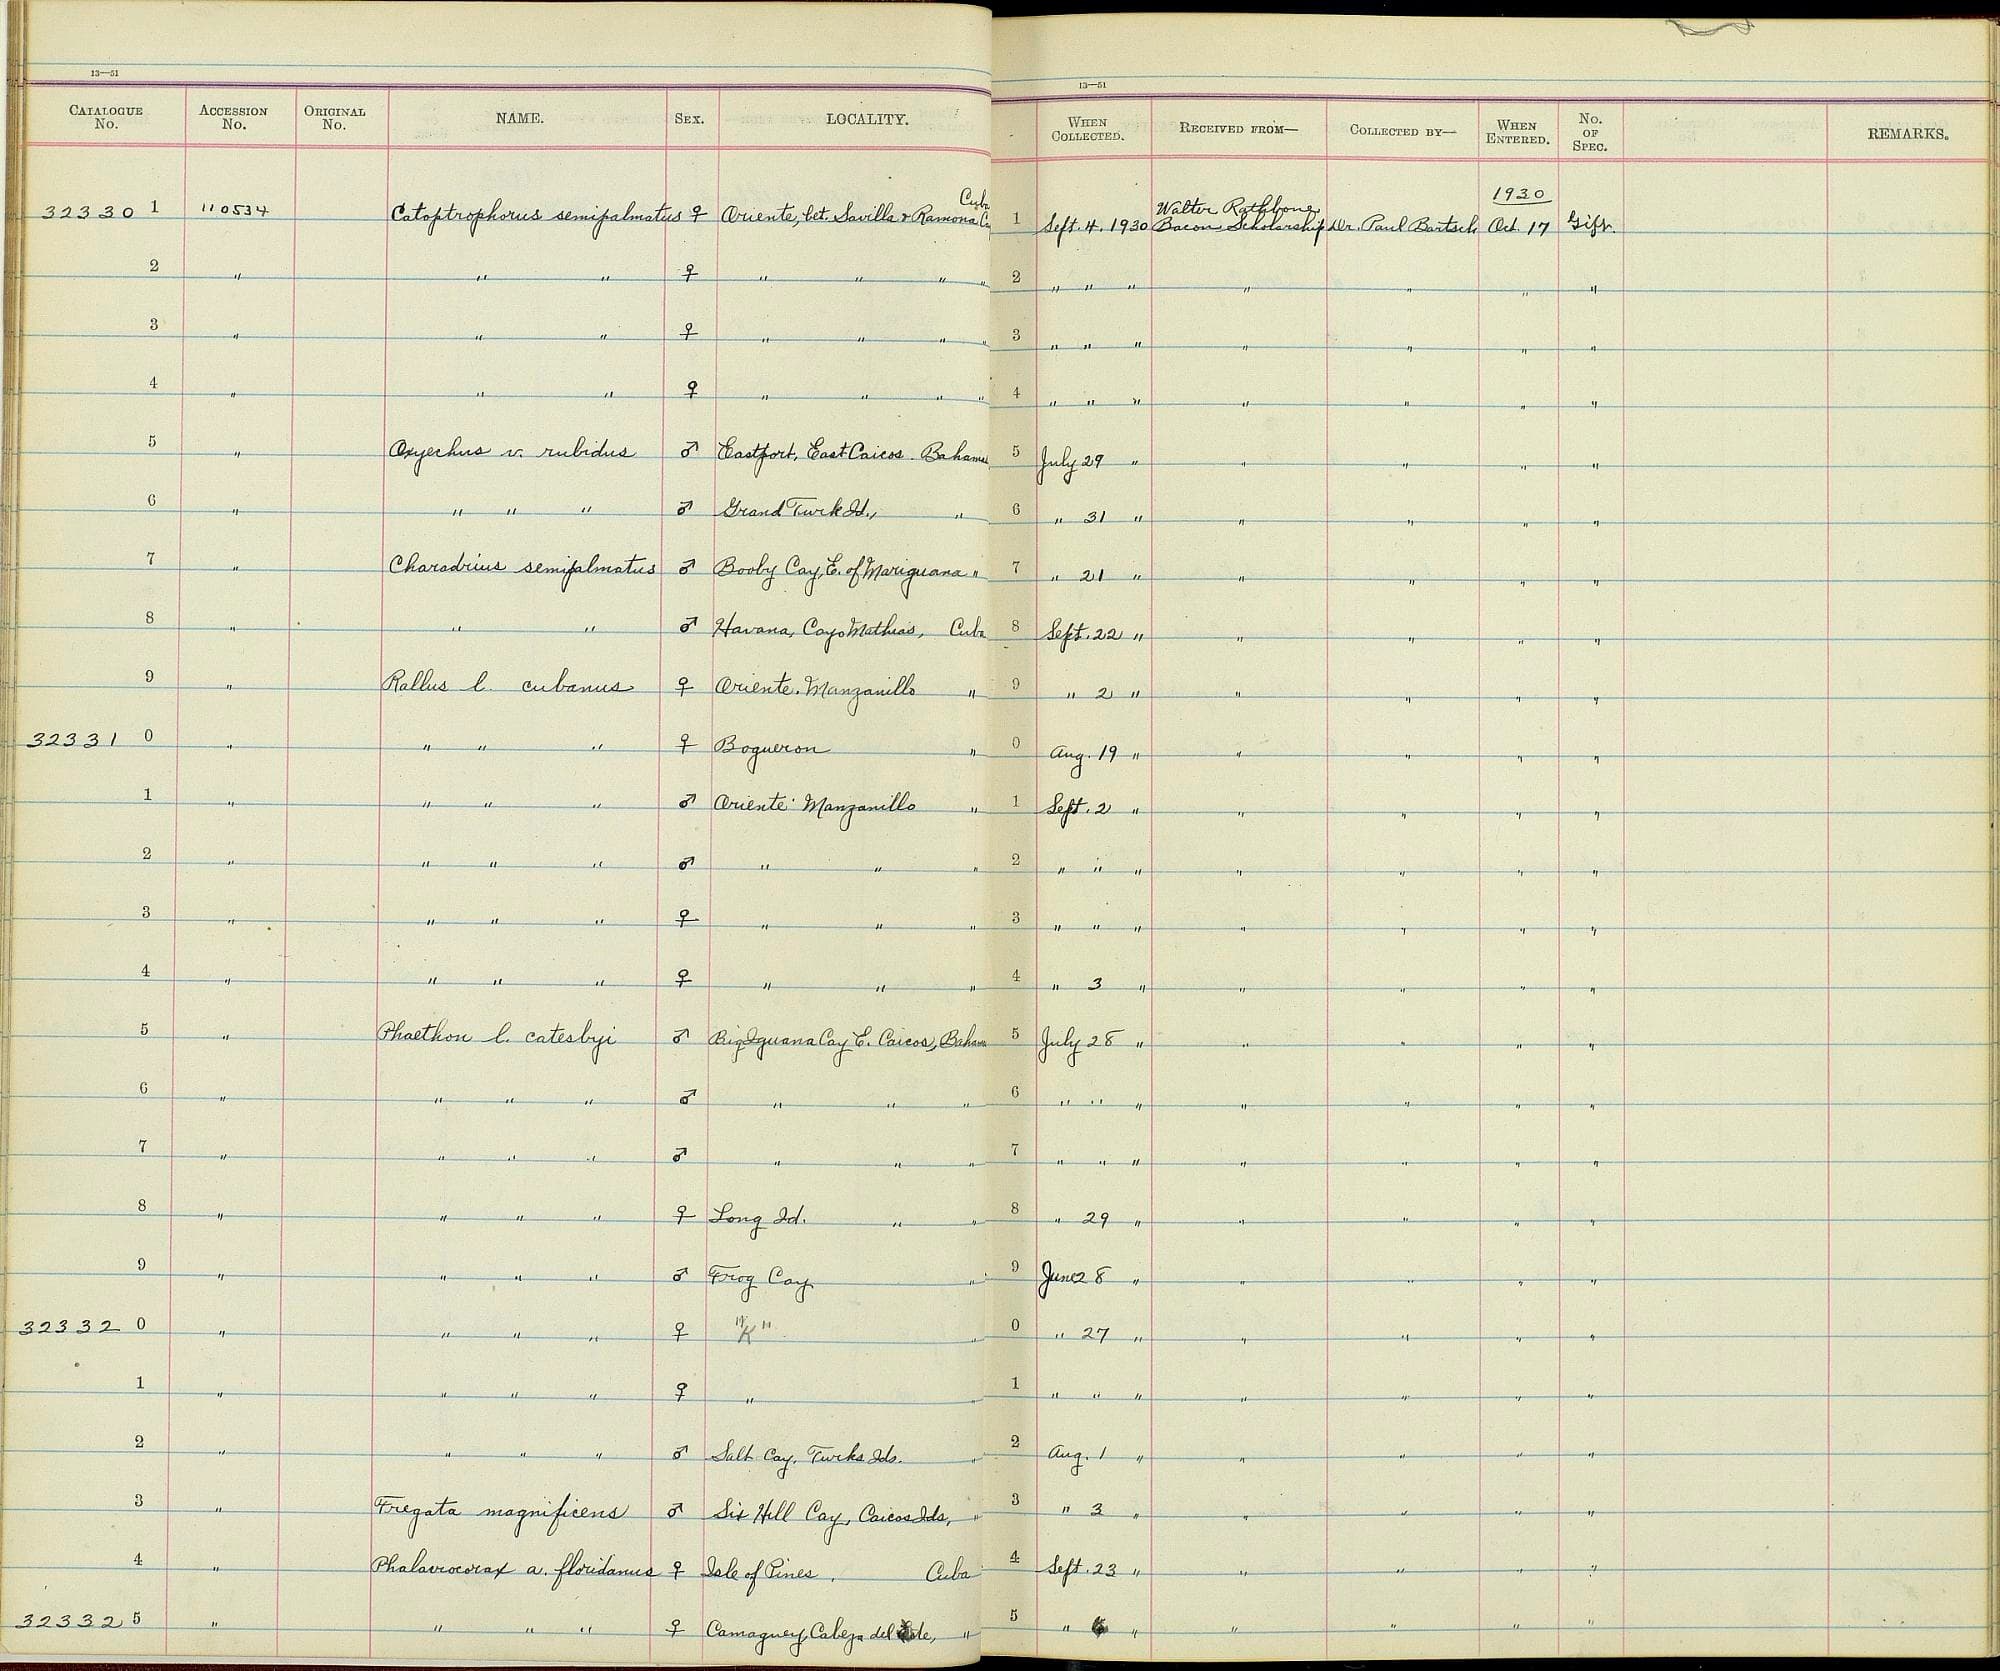 13—51
13—51
CATALOGUE No. ACCESSION No. ORIGINAL No. NAME. SEX. LOCALITY. WHEN COLLECTED. RECEIVED FROM— COLLECTED BY— WHEN ENTERED. No. OF SPEC. REMARKS.
32330 1 110534 Catoptrophorus semipalmatus ♀ Oriente, bet. Savilla & Ramona Cuba 1 Sept. 4. 1930 Walter Rathbone Bacon Scholarship Dr. Paul Bartsch 1930 Oct. 17 Gift.
2 " " " ♀ " " " " 2 " " " " " " "
3 " " " ♀ " " " " 3 " " " " " " "
4 " " " ♀ " " " " 4 " " " " " " "
5 " Oxyechus v. rubidus ♂ Eastport, East Caicos. Bahamas 5 July 29 " " " " "
6 " " " " ♂ Grand Turk Id., " 6 " 31 " " " " "
7 " Charadrius semipalmatus ♂ Booby Cay, E. of Mariguana " 7 " 21 " " " " "
8 " " " ♂ Havana, Cayo Mathias, Cuba 8 Sept. 22 " " " " "
9 " Rallus l. cubanus ♀ Oriente. Manzanillo " 9 " 2 " " " " "
32331 0 " " " " ♀ Boqueron " 0 Aug. 19 " " " " "
1 " " " " ♂ Oriente. Manzanillo " 1 Sept. 2 " " " " "
2 " " " " ♂ " " " 2 " " " " " " "
3 " " " " ♀ " " " 3 " " " " " " "
4 " " " " ♀ " " " 4 " 3 " " " " "
5 " Phaethon l. catesbyi ♂ Big Iguana Cay E. Caicos, Bahama 5 July 28 " " " " "
6 " " " " ♂ " " " 6 " " " " " " "
7 " " " " ♂ " " " 7 " " " " " " "
8 " " " " ♀ Long Id. " " 8 " 29 " " " " "
9 " " " " ♂ Frog Cay " 9 June 28 " " " " "
32332 0 " " " " ♀ "K" " 0 " 27 " " " " "
1 " " " " ♀ " " 1 " " " " " " "
2 " " " " ♂ Salt Cay, Turks Ids. " 2 Aug. 1 " " " " "
3 " Fregata magnificens ♂ Six Hill Cay, Caicos Ids, " 3 " 3 " " " " "
4 " Phalacrocorax a. floridanus ♀ Isle of Pines, Cuba 4 Sept. 23 " " " " "
32332 5 " " " " ♀ Camaguey, Cabeza del Este, " 5 " " " " " "